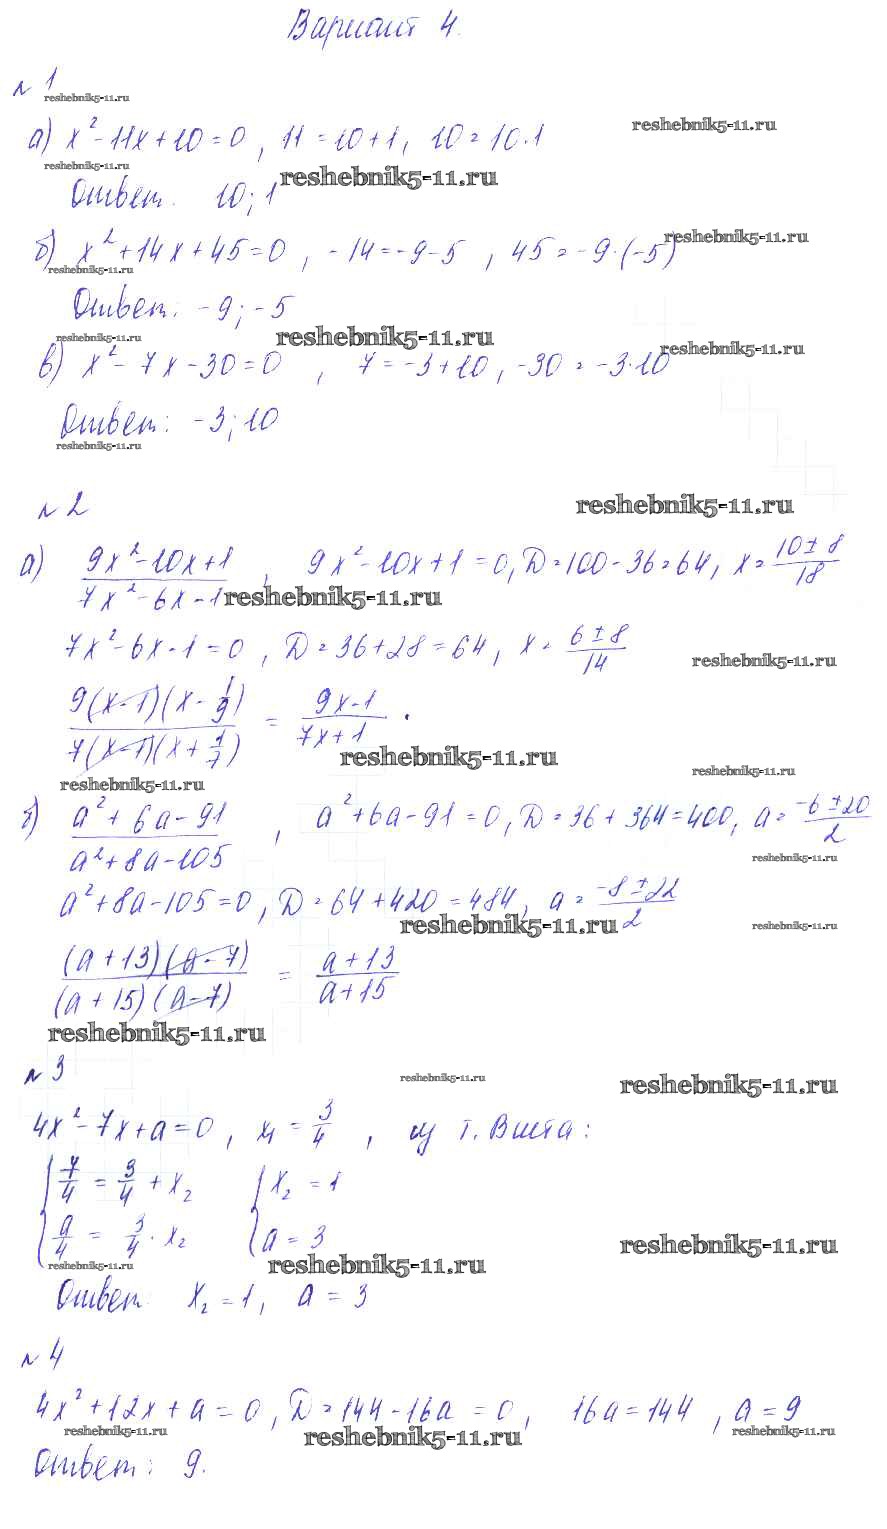 Вариант 4.
№ 1
reshebnik5-11.ru
а) x² - 11x + 10 = 0, 11 = 10 + 1, 10 = 10 · 1
reshebnik5-11.ru
reshebnik5-11.ru
reshebnik5-11.ru
Ответ. 10; 1
б) x² + 14x + 45 = 0, -14 = -9 - 5, 45 = -9 · (-5)
reshebnik5-11.ru
reshebnik5-11.ru
Ответ: -9; -5
reshebnik5-11.ru
reshebnik5-11.ru
reshebnik5-11.ru
в) x² - 7x - 30 = 0, 7 = -3 + 10, -30 = -3 · 10
Ответ: -3; 10
reshebnik5-11.ru
№ 2
reshebnik5-11.ru
а) (9x² - 10x + 1)/(7x² - 6x - 1), 9x² - 10x + 1 = 0, D = 100 - 36 = 64, x = (10 ± 8)/18
reshebnik5-11.ru
7x² - 6x - 1 = 0, D = 36 + 28 = 64, x = (6 ± 8)/14
reshebnik5-11.ru
9(x - 1)(x - 1/9)/7(x - 1)(x + 1/7) = (9x - 1)/(7x + 1).
reshebnik5-11.ru
reshebnik5-11.ru
reshebnik5-11.ru
б) (a² + 6a - 91)/(a² + 8a - 105), a² + 6a - 91 = 0, D = 36 + 364 = 400, a = (-6 ± 20)/2
reshebnik5-11.ru
a² + 8a - 105 = 0, D = 64 + 420 = 484, a = (-8 ± 22)/2
reshebnik5-11.ru
reshebnik5-11.ru
(a + 13)(a - 7)/(a + 15)(a - 7) = (a + 13)/(a + 15)
reshebnik5-11.ru
№ 3
reshebnik5-11.ru
reshebnik5-11.ru
4x² - 7x + a = 0, x₁ = 3/4, из т. Виета:
{ 7/4 = 3/4 + x₂ { x₂ = 1
a/4 = 3/4 · x₂ a = 3
reshebnik5-11.ru
reshebnik5-11.ru
reshebnik5-11.ru
Ответ: x₂ = 1, a = 3
№ 4
4x² + 12x + a = 0, D = 144 - 16a = 0, 16a = 144, a = 9
reshebnik5-11.ru
reshebnik5-11.ru
reshebnik5-11.ru
Ответ: 9.